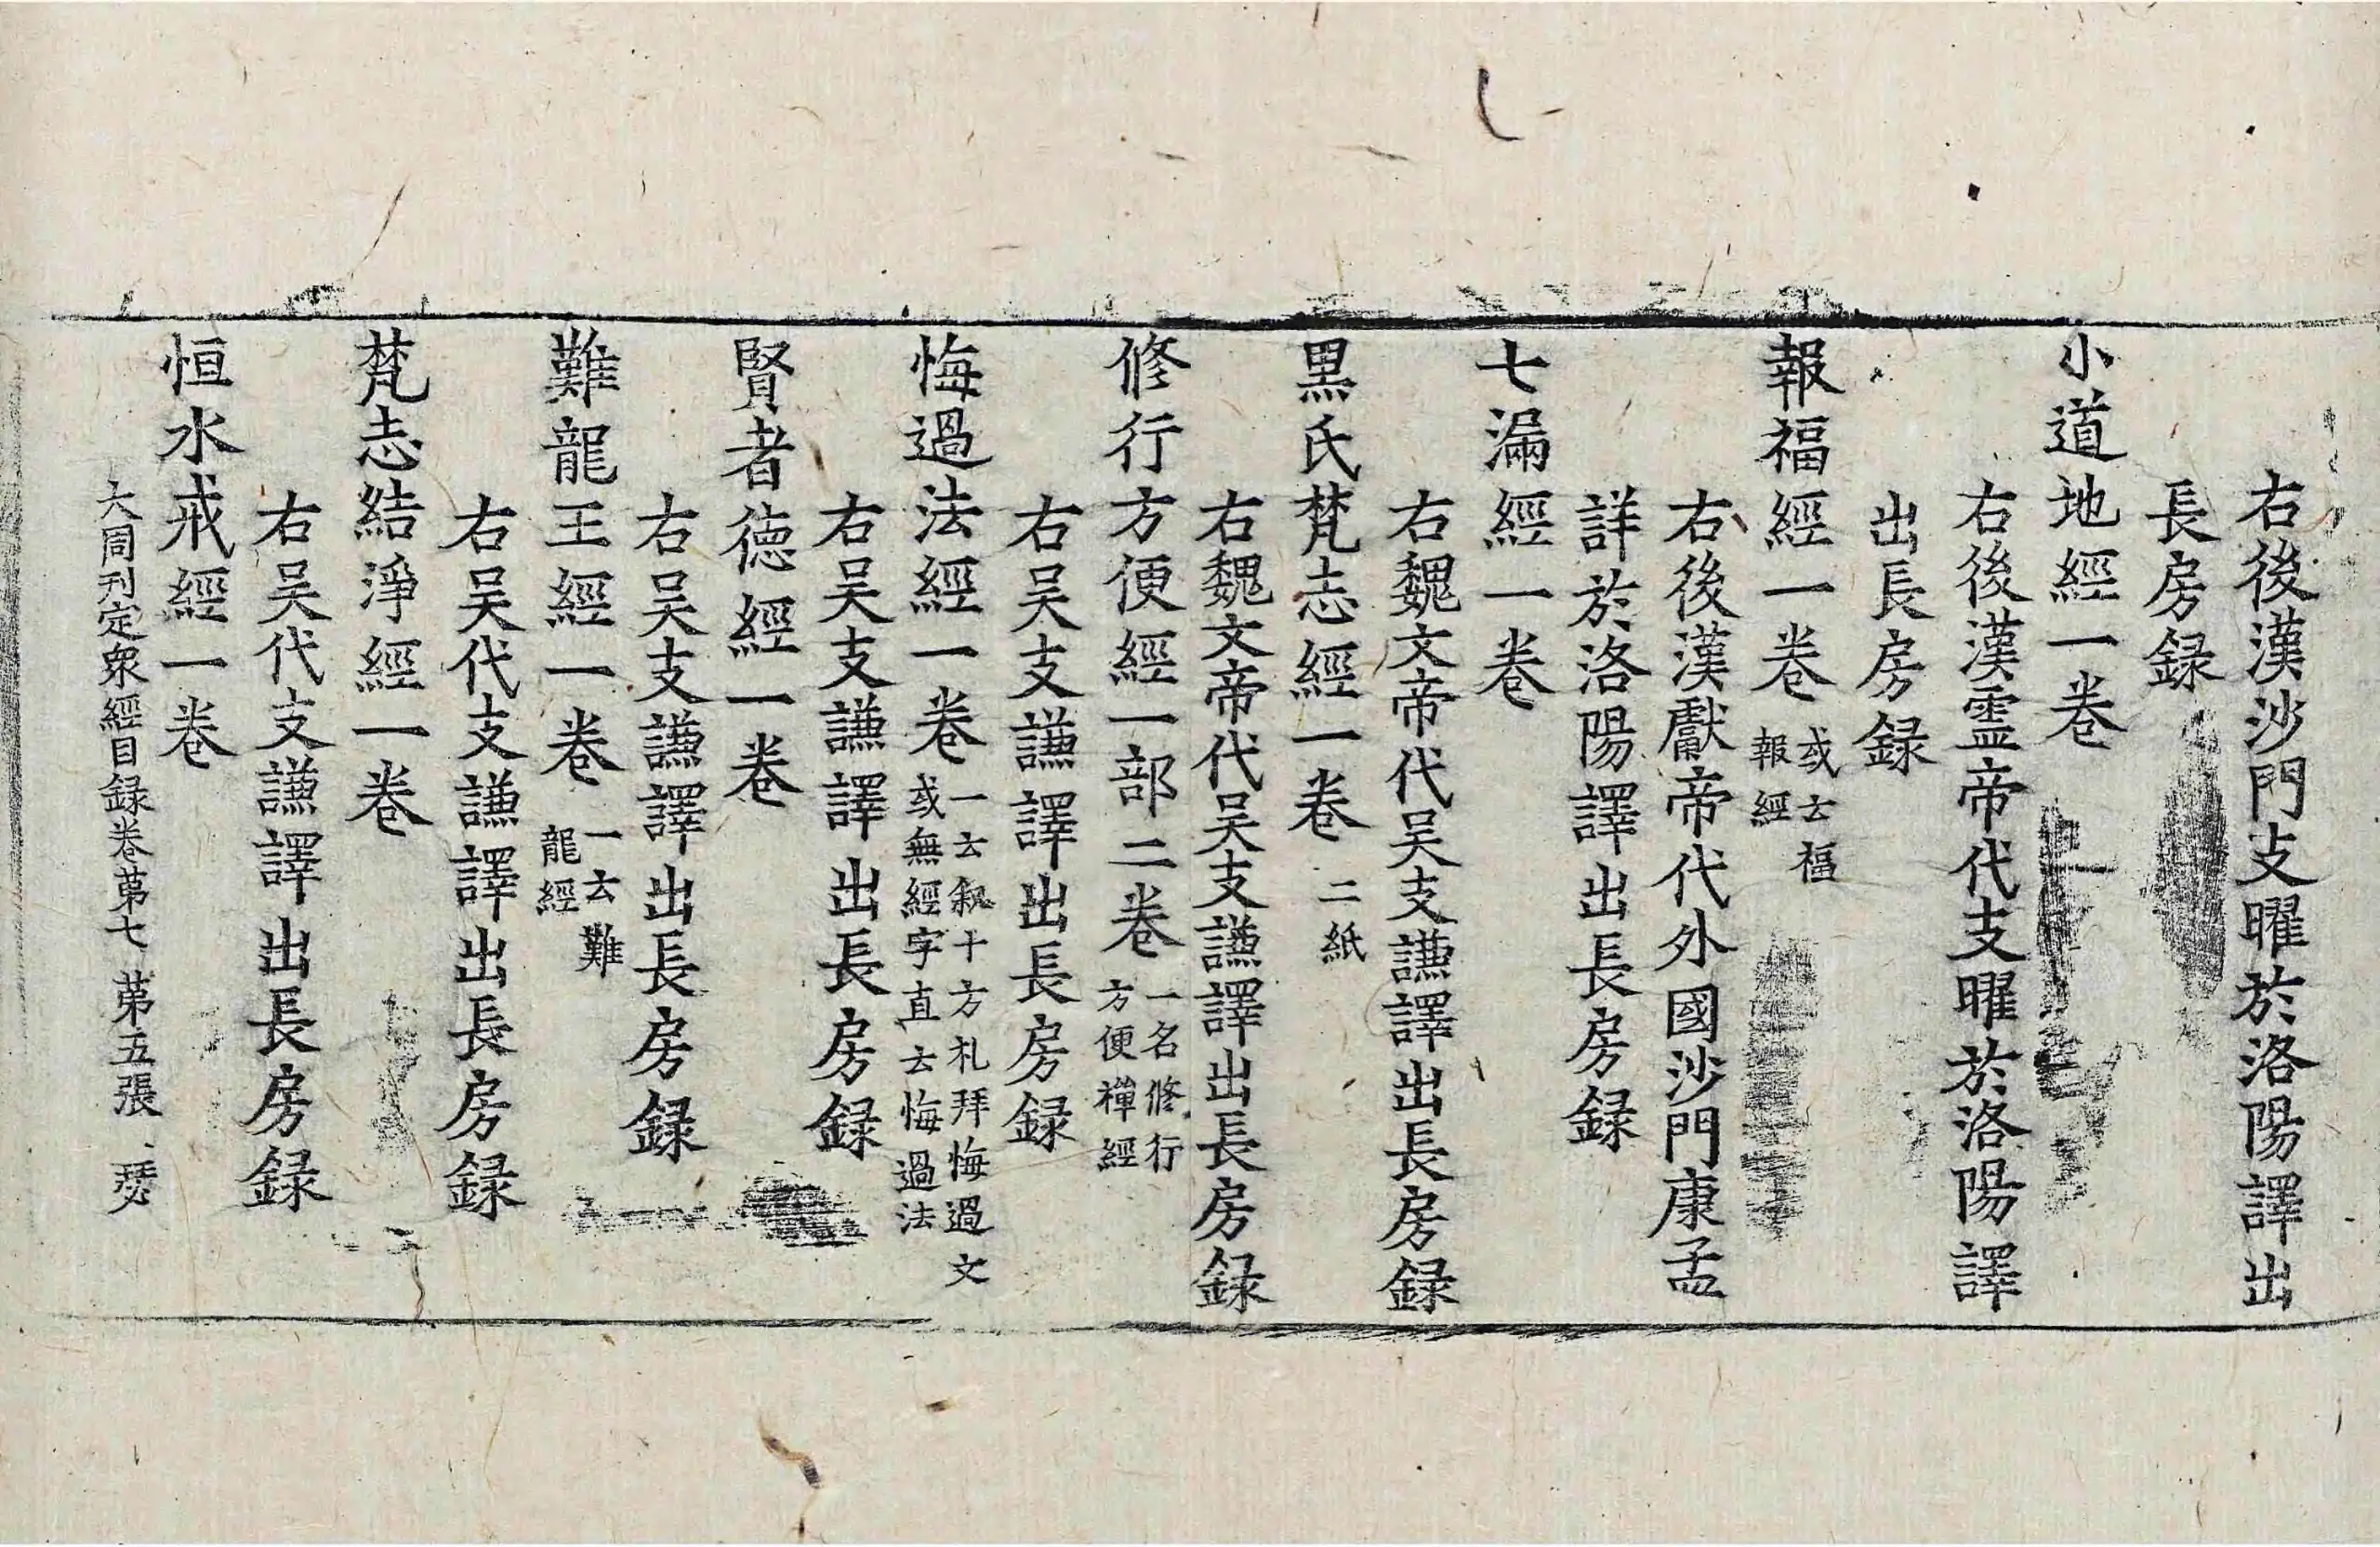 右後漢沙門支曜於洛陽譯出
長房録
小道地經一卷
右後漢霊帝代支曜於洛陽譯
出長房録
報福經一卷
或云福
報經
右後漢獻帝代外國沙門康孟
詳於洛陽譯出長房録
七漏經一卷
右魏文帝代吴支謙譯出長房録
黒氏梵志經一卷
二紙
右魏文帝代吴支謙譯出長房録
修行方便經一部二卷
一名修行
方便禅經
右吴支謙譯出長房録
悔過法經一卷
一云叙十方礼拜悔過文
或無經字直云悔過法
右吴支謙譯出長房録
賢者徳經一卷
右吴支謙譯出長房録
難龍王經一卷
一云難
龍經
右吴代支謙譯出長房録
梵志結淨經一卷
右吴代支謙譯出長房録
恒水戒經一卷
大周刊定衆經目録卷苐七 苐五張 瑟